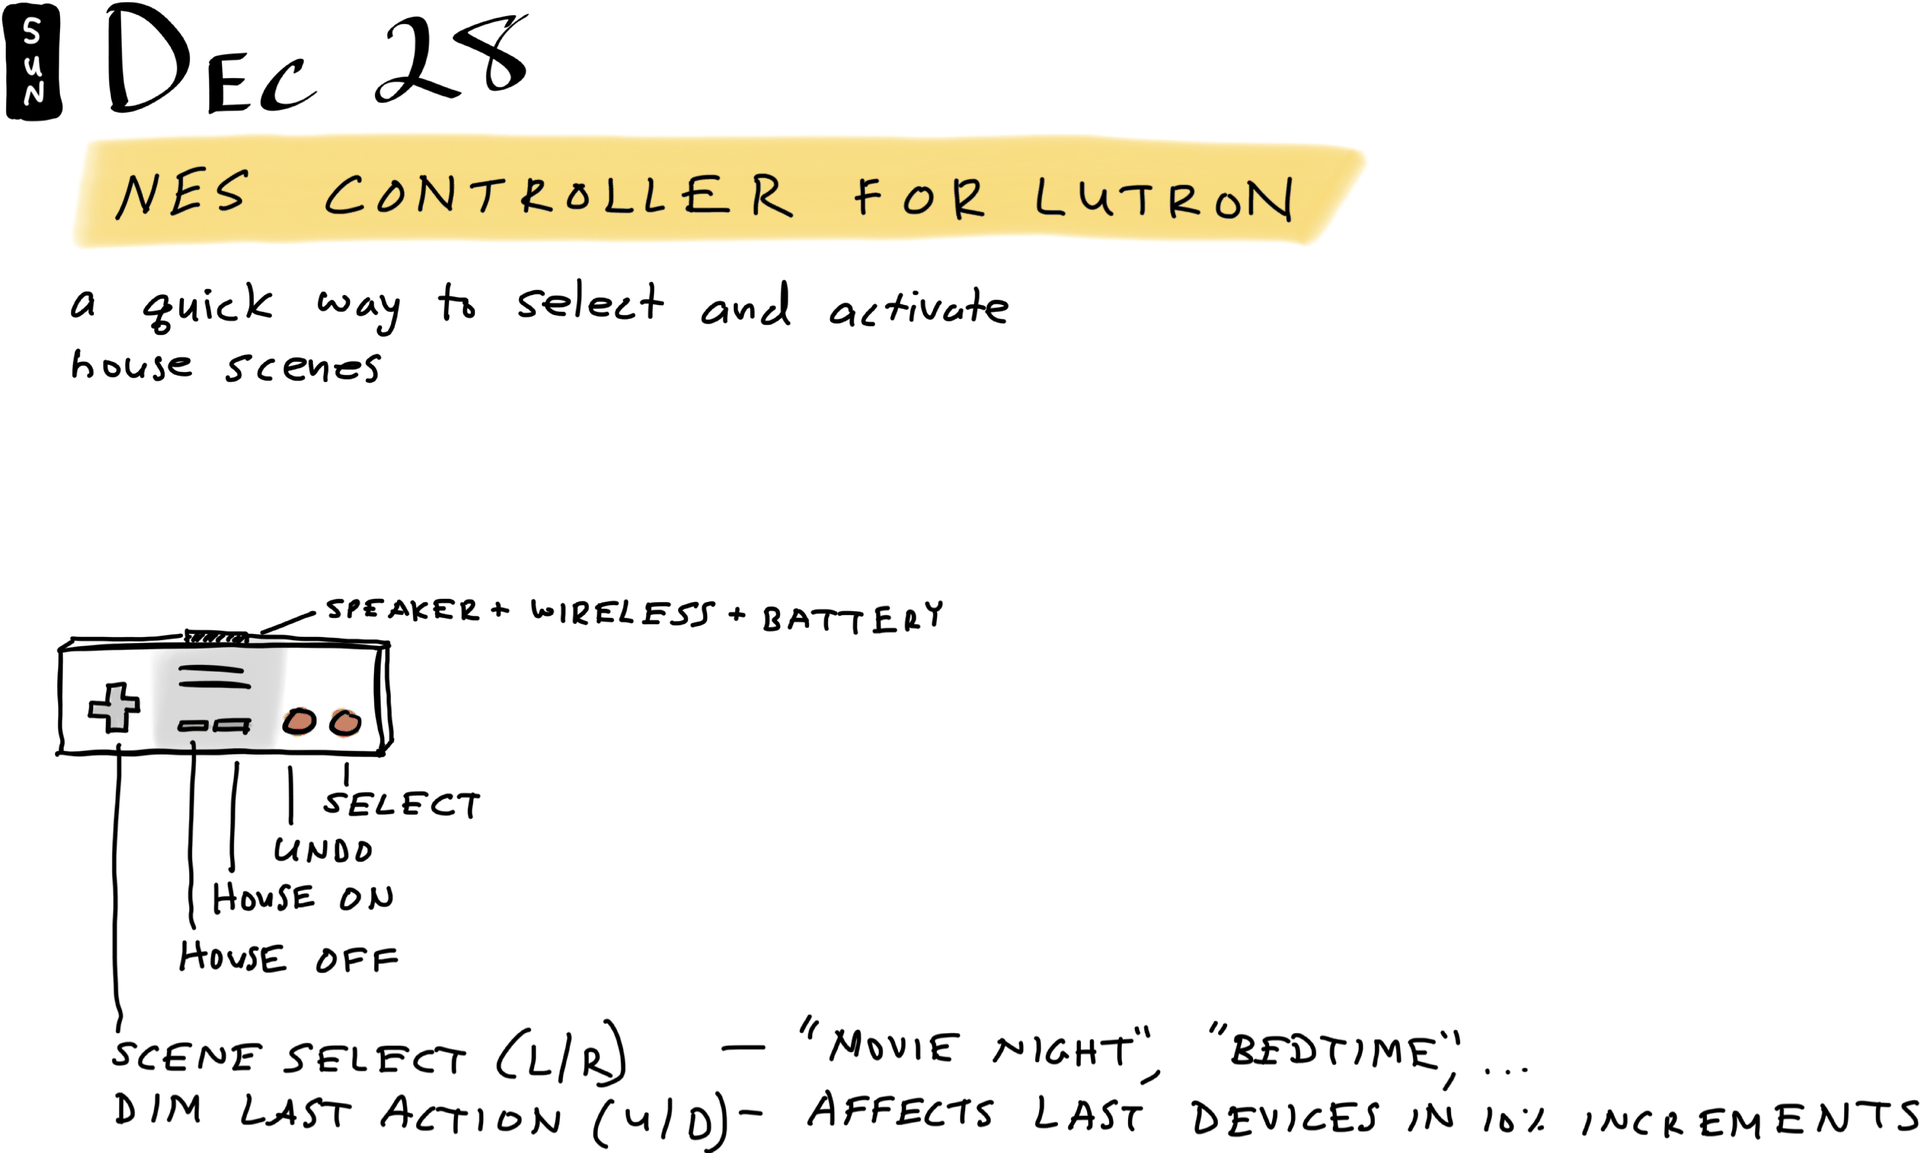 SUN
DEC 28
NES CONTROLLER FOR LUTRON
a quick way to select and activate
house scenes
SPEAKER + WIRELESS + BATTERY
SELECT
UNDO
HOUSE ON
HOUSE OFF
SCENE SELECT (L/R) — "MOVIE NIGHT", "BEDTIME", ...
DIM LAST ACTION (U/D) - AFFECTS LAST DEVICES IN 10% INCREMENTS